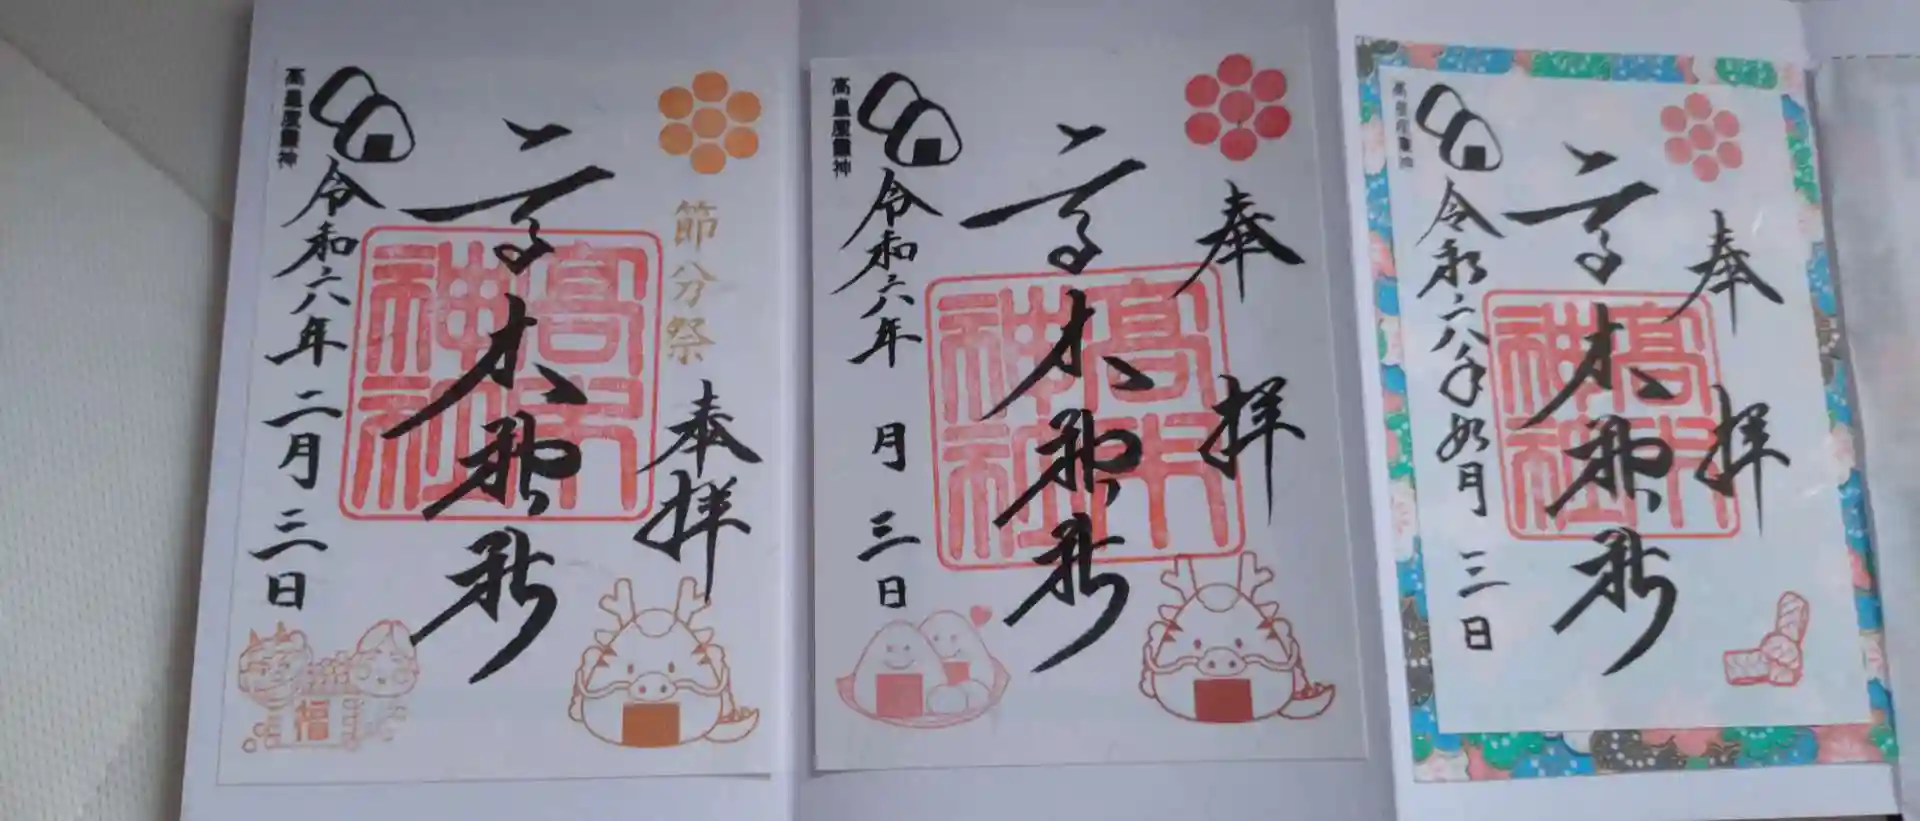 節分祭
奉拝
高木神社
高木神社
令和六年二月三日
高皇産靈神
福
奉拝
高木神社
高木神社
令和六年 月三日
高皇産靈神
奉拝
高木神社
高木神社
令和六年如月三日
高皇産靈神